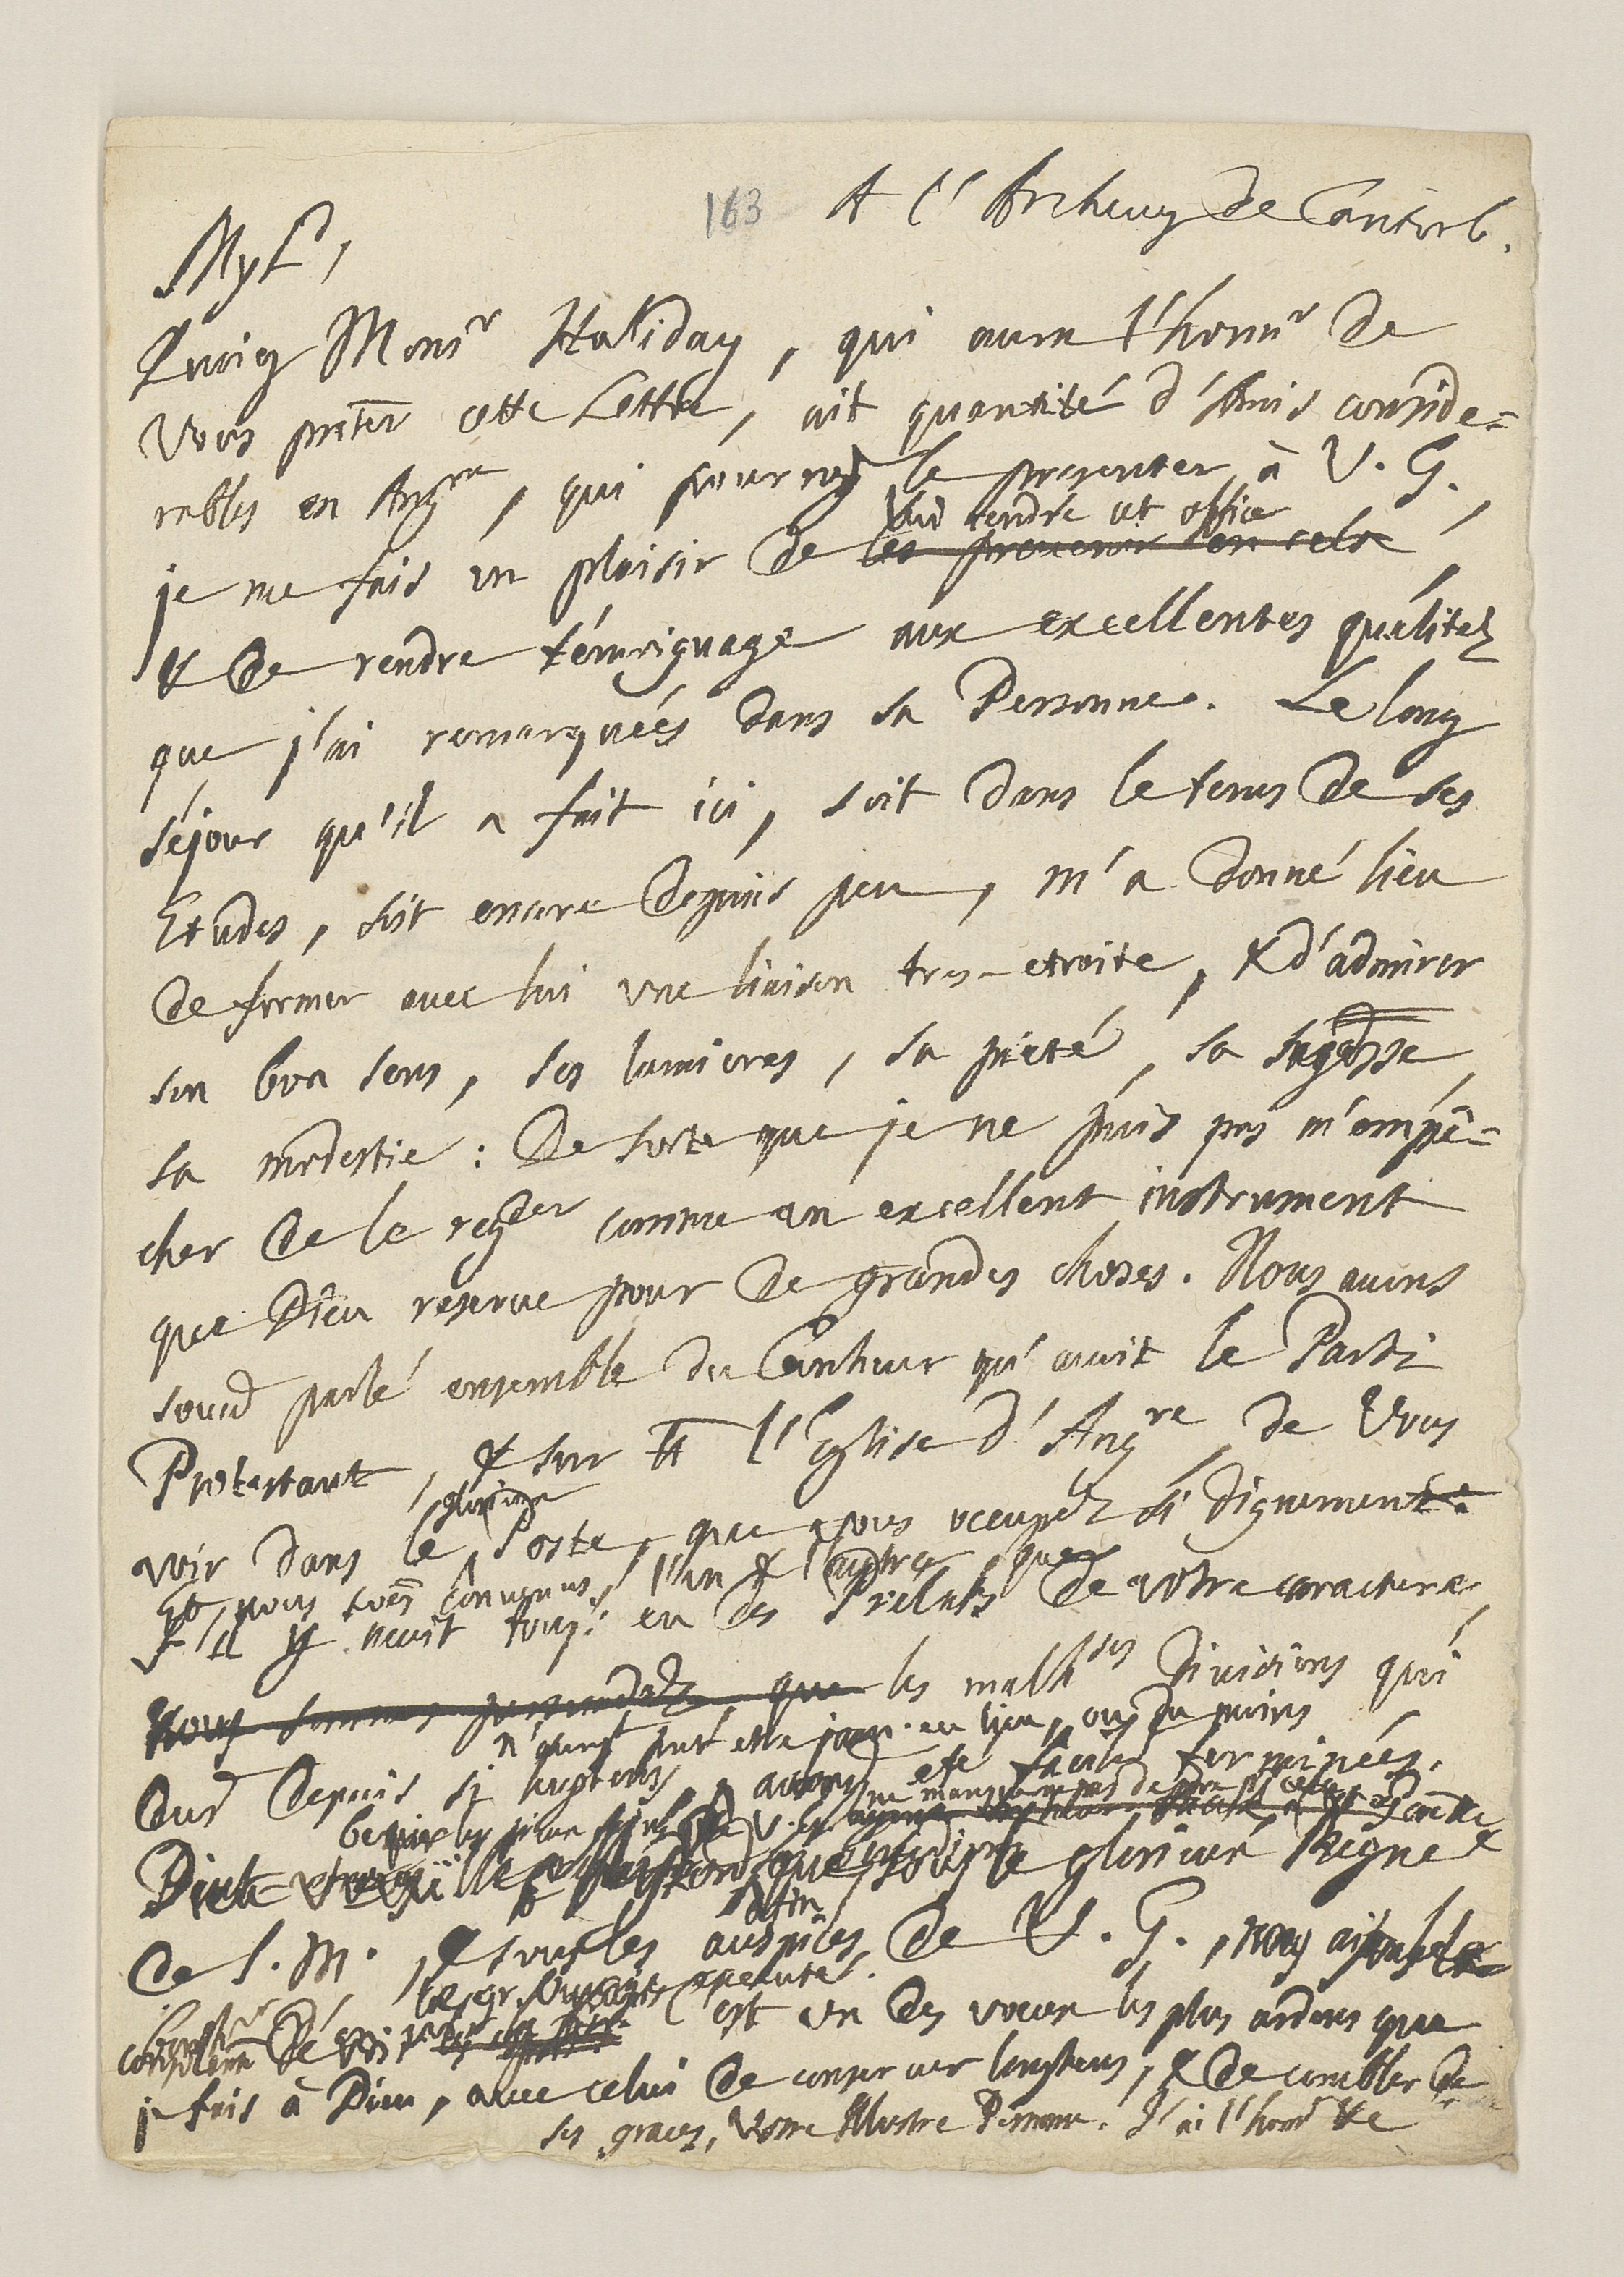 163 A l'Archevq de Cantorb.
My L^d,
Quoiq Mons^r Haliday, qui aura l'honn^r de
Vous pnter cette Lettre, ait quantité d'Amis conside=
rables en Ang^re, qui pourroi^t le presenter à V. G.,
lui rendre cet office
je me fais un plaisir de les prevenir en cela
& de rendre témoignage aux excellentes qualitez
que j'ai remarquées dans sa Personne. Le long
séjour qu'il a fait ici, soit dans le tems de ses
Etudes, soit encore depuis peu, m'a donné lieu
de former avec lui une liaison tres-etroite, & d'admirer
son bon sens, ses lumieres, sa pieté, sa sagesse,
sa modestie : De sorte que je ne puis pas m'empê=
cher de le reg^der comme un excellent instrument
que Dieu reserve pour de grandes choses. Nous avons
souv^t parlé ensemble du bonheur qu'avoit le Parti
Protestant, & sur tt l'Eglise d'Ang^re, de Vous
glorieux
voir dans le Poste, que vous occupez si dignement.
Et nous soes convenus, l'un & l'autre, que
s'il y avoit touj. eu des Prelats de votre caractere,
nous sommes persuadez que les malh^ses divisions qui
n'auroi^t peut etre jam. eu lieu, ou du moins
dur^t depuis si longtems, auroi^t eté facilt terminées.
Dieu veuille que sous le glorieux Regne
de S. M., & sous les auspices de V. G., nous aions la
les gr. Ouvrages executer.
C'est un des voeux les plus ardens que
je fais à Dieu, avec celui de conserver longtems, & de combler de
ses graces, Votre Illustre Personne. J'ai l'honr &c